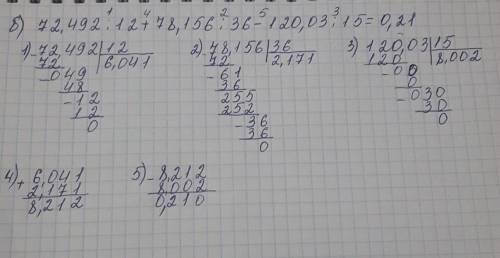 б) 72,492 : 12 + 78,156 : 36 - 120,03 : 15 = 0,21
1) 72,492 | 12
72 | 6,041
049
48
-12
12
0
2) 78,156 | 36
72 | 2,171
-61
36
255
252
-36
36
0
3) 120,03 | 15
120 | 8,002
-00
0
-030
30
0
4) + 6,041
2,171
8,212
5) - 8,212
8,002
0,210